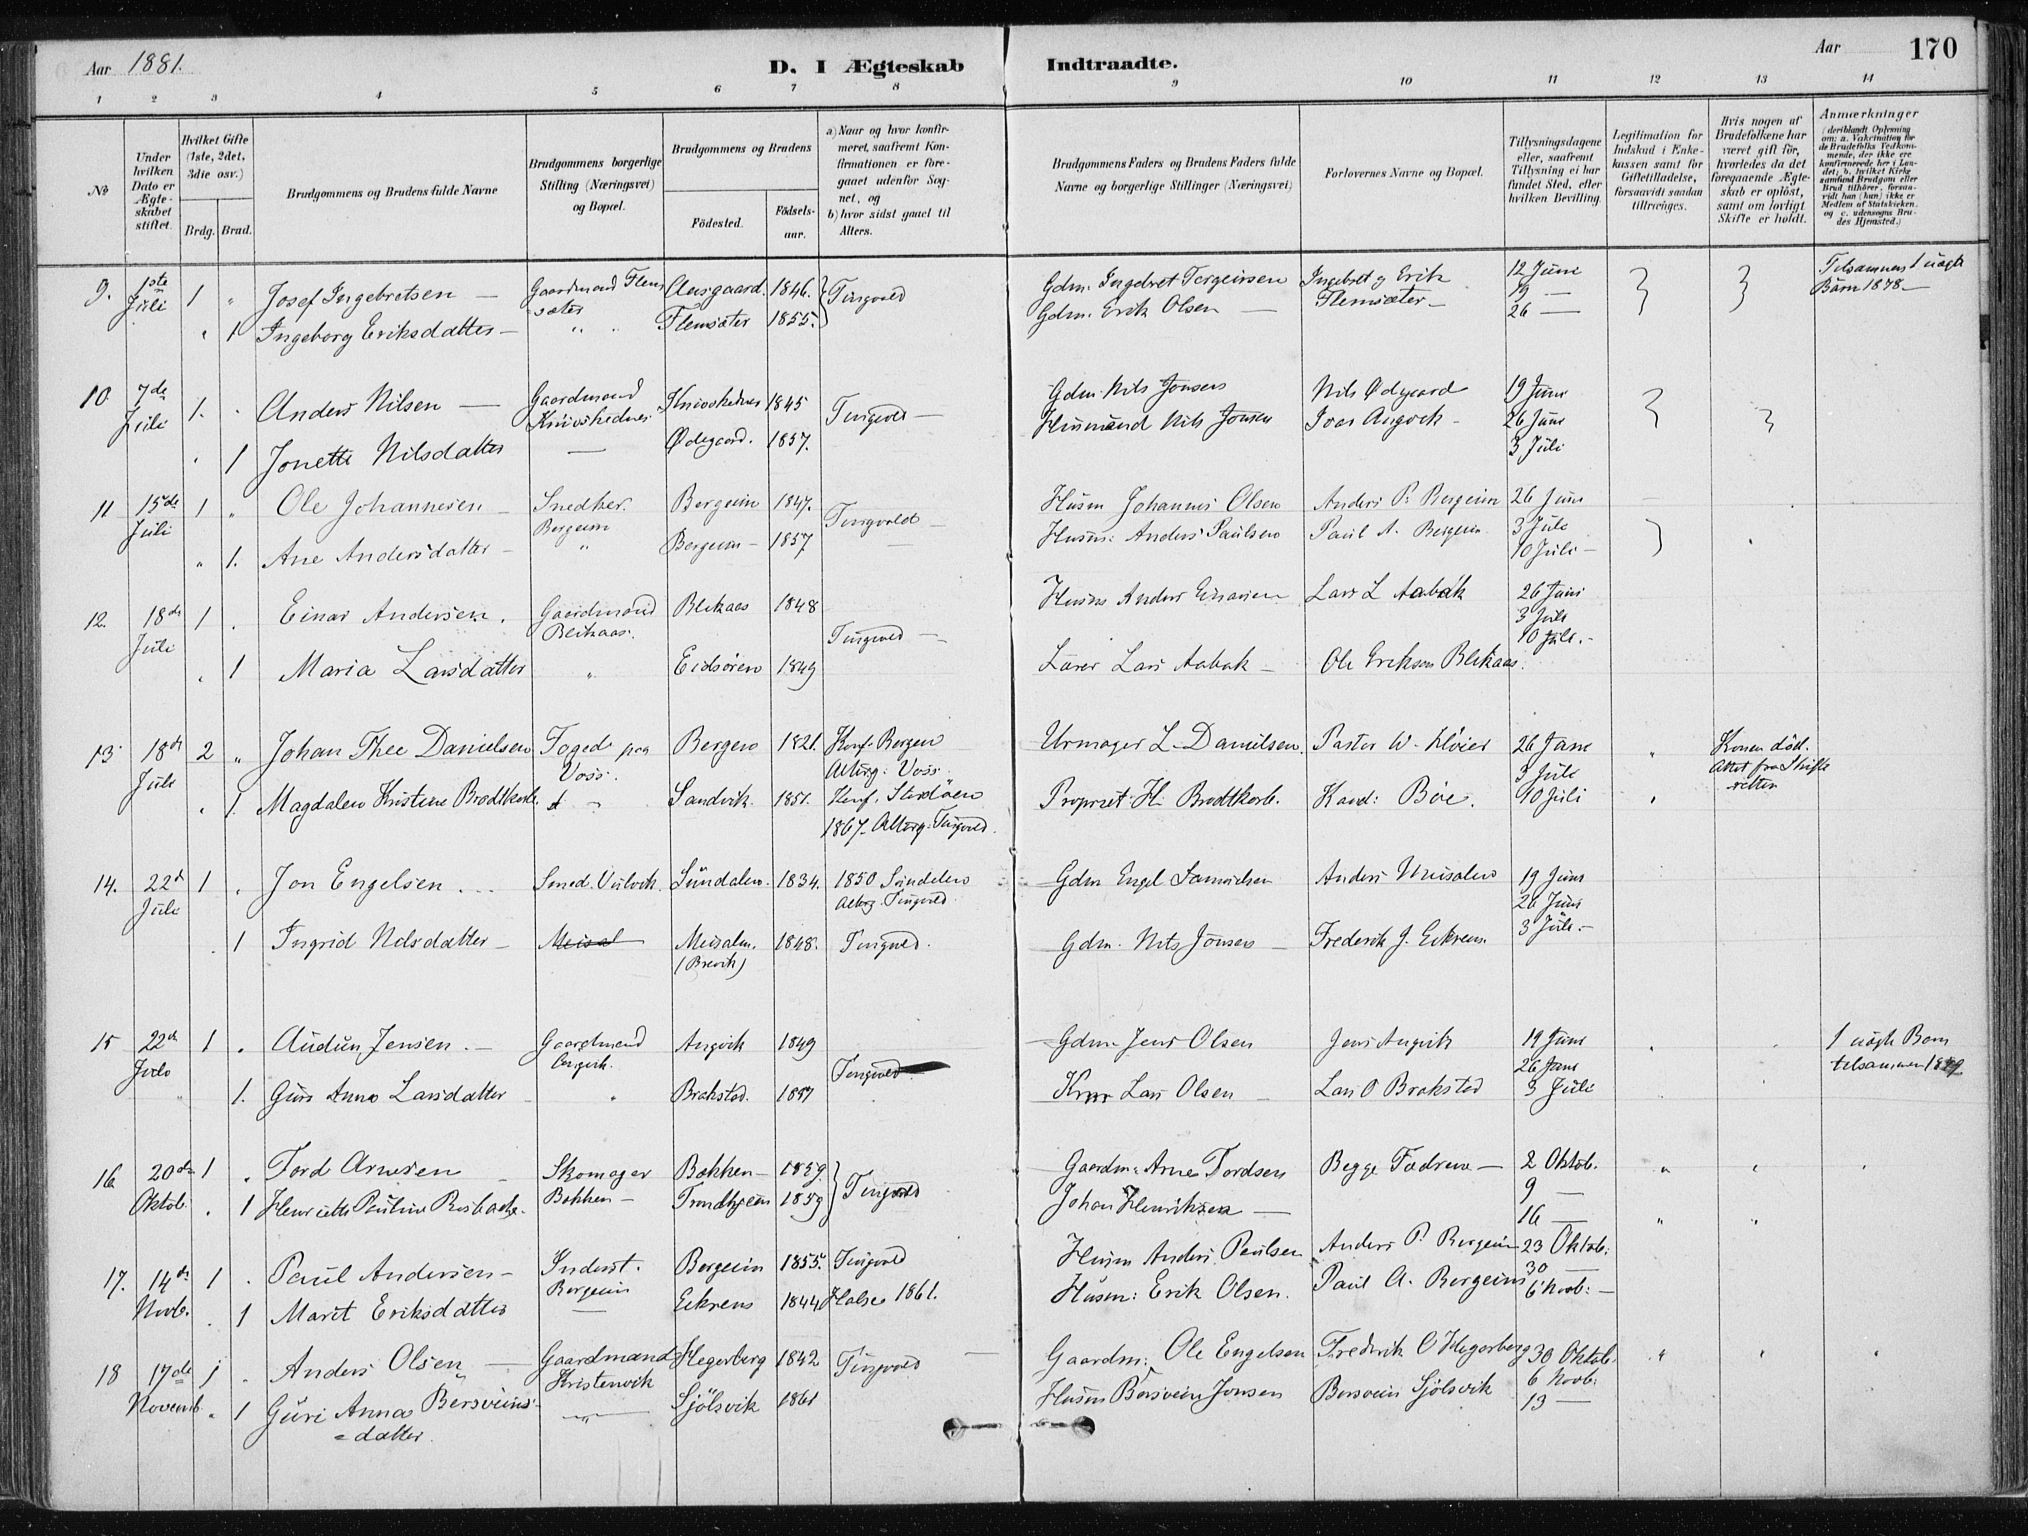 Aar 1881.
D. I Ægteskab Indtraadte.
Aar
170
1 2 3 4 5 6 7 8 9 10 11 12 13 14
No
Under hvilken Dato er Ægteskabet stiftet.
Hvilket Gifte (1ste, 2det, 3die osv.)
Brdg. Brud.
Brudgommens og Brudens fulde Navne
Brudgommens borgerlige Stilling (Næringsvei) og Bopæl.
Brudgommens og Brudens
Fødested. Fødselsaar.
a) Naar og hvor konfirmeret, saafremt Konfirmationen er foregaaet udenfor Sognet, og
b) hvor sidst gaaet til Alters.
Brudgommens Faders og Brudens Faders fulde Navne og borgerlige Stillinger (Næringsvei)
Forlovernes Navne og Bopæl.
Tillysningsdagene eller, saafremt Tillysning ei har fundet Sted, efter hvilken Bevilling.
Legitimation for Indskud i Enkekassen samt for Giftetilladelse, forsaavidt saadan tiltrænges.
Hvis nogen af Brudefolkene har været gift før, hvorledes da det foregaaende Ægteskab er opløst, samt om lovligt Skifte er holdt.
Anmærkninger
(deriblandt Oplysning om: a. Vakcination for de Brudefolks Vedkommende, der ikke ere konfirmerede her i Landet; b. hvilket Kirkesamfund Brudgom eller Brud tilhører, forsaavidt han (hun) ikke er Medlem af Statskirken, og c. udensogns Brudes Hjemsted.)
9. 1ste Juli 1 " Josef Ingebretsen — Gaardmand Flemsæter Aasgaard. 1846. Tingvold Gdm. Ingebret Torgeirsen Ingebret og Erik Flemsæter— 12 Juni Tilsammen 1 uægte Barn 1878—
" 1 Ingeborg Eriksdatter— " " Flemsæter 1855. Gdm. Erik Olsen — 19 — 26 —
10 7de Juli 1. " Anders Nilsen — Gaardmand Knivskednes Knivskednes 1845 Tingvold — Gdm. Nils Jonsen Nils Ødegaard 19 Juni
" 1 Jonette Nilsdatter — Ødegaard. 1857. Husmand Nils Jonsen Ivar Angvik— 26 Juni 3 Juli
11 15de Juli 1 " Ole Johannesen — Snedker. Bergeim Bergeim 1847. Tingvold — Husm Johannes Olsen Anders P: Bergeim 26 Juni
" 1. Ane Andersdatter— " Bergeim— 1857 — Husm: Anders Paulsen Paul A. Bergeim 3 Juli 10 Juli—
12. 18de Juli 1 . Einar Andersen. Gaardmand Blikaas. Blikaas 1848 Tingvold — Husm Anders Einarsen Lars L Aabak 26 Juni 3 Juli 10 Juli.-
. 1 Maria Larsdatter " Eidsören 1849 Lærer Lars Aabak — Ole Eriksen Blikaas.
13 18de Juli 2 " Johan Thee Danielsen Foged paa Voss. Bergen 1821. Konf. Bergen Altrg: Voss. Urmager L. Danielsen Pastor W. Kløier 26 Juni " Konen död. Attest fra Skifteretten
. 1. Magdalen Kristine Brodtkorb. Sandvik. 1851. Konf. Stordöen 1867. Altrg. Tingvold. Propriet: H. Brodtkorb. Kand: Böe. 3 Juli 10 Juli "
14. 22d Juli 1 . Jon Engelsen. Smed. Sundalen. 1834. 1850 Sundalen Altrg. Tingvold. Gdm Engel Samuelsen Anders 19 Juni 26 Juni
. 1 Ingrid Nilsdatter— Meisal Meisalm. (Brevik) 1848. Tingvold. Gdm. Nils Jonsen — Frederik J. Eikrem. 3 Juli.-
15 22de Julo 1 . Audun Jensen.— Gaardmand Angvik. Angvik 1849 Tingvold. Gdm. Jens Olsen Jens Angvik 19 Juni 1 uægte Barn tilsammen
" 1. Guro Anna Larsdatter " Brakstad. 1857 Lars Olsen — Lars O Brakstad 26 Juni 3 Juli
16 20de Oktob. 1 . Tord Arnesen — Skomager Bakken— Bakken— 1859. Tingvold Gaardm: Arne Tordsen Begge Fædrene — 2 Oktob. "
. 1 Henriette Pauline Trondhjem 1859 Johan Henriksen — 9 — 16 — "
17. 14de Novb. 1 . Paul Andersen— Inderst. Bergeim Bergeim 1855. Tingvold Husm Anders Paulsen Anders P. Bergeim 23 Oktob:
. 1 Marit Eriksdatter — Eikrem 1844 Halse 1861. Husm: Erik Olsen. Paul A. Bergeim 30 — 6 Novb:—
18 17de Novemb. 1 . Anders Olsen — Gaardmand Kristenvik Hegerberg 1842 Tingvold — Gaardm: Ole Engelsen Frederik O Hegerberg 30 Oktob. "
" 1 Guri Anna Bersveinsdatter. —"— Sjölsvik 1861 Husm Bersvein Jonsen Bersvein Sjölsvik 6 Novb: 13 —